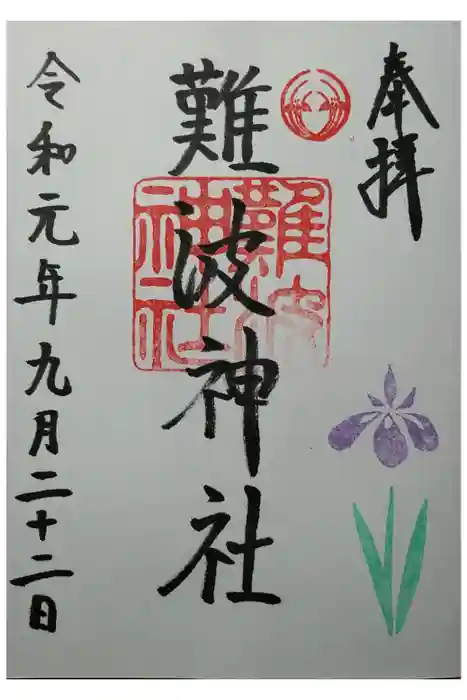 奉拝
難波神社
難波
神社
令和元年九月二十二日